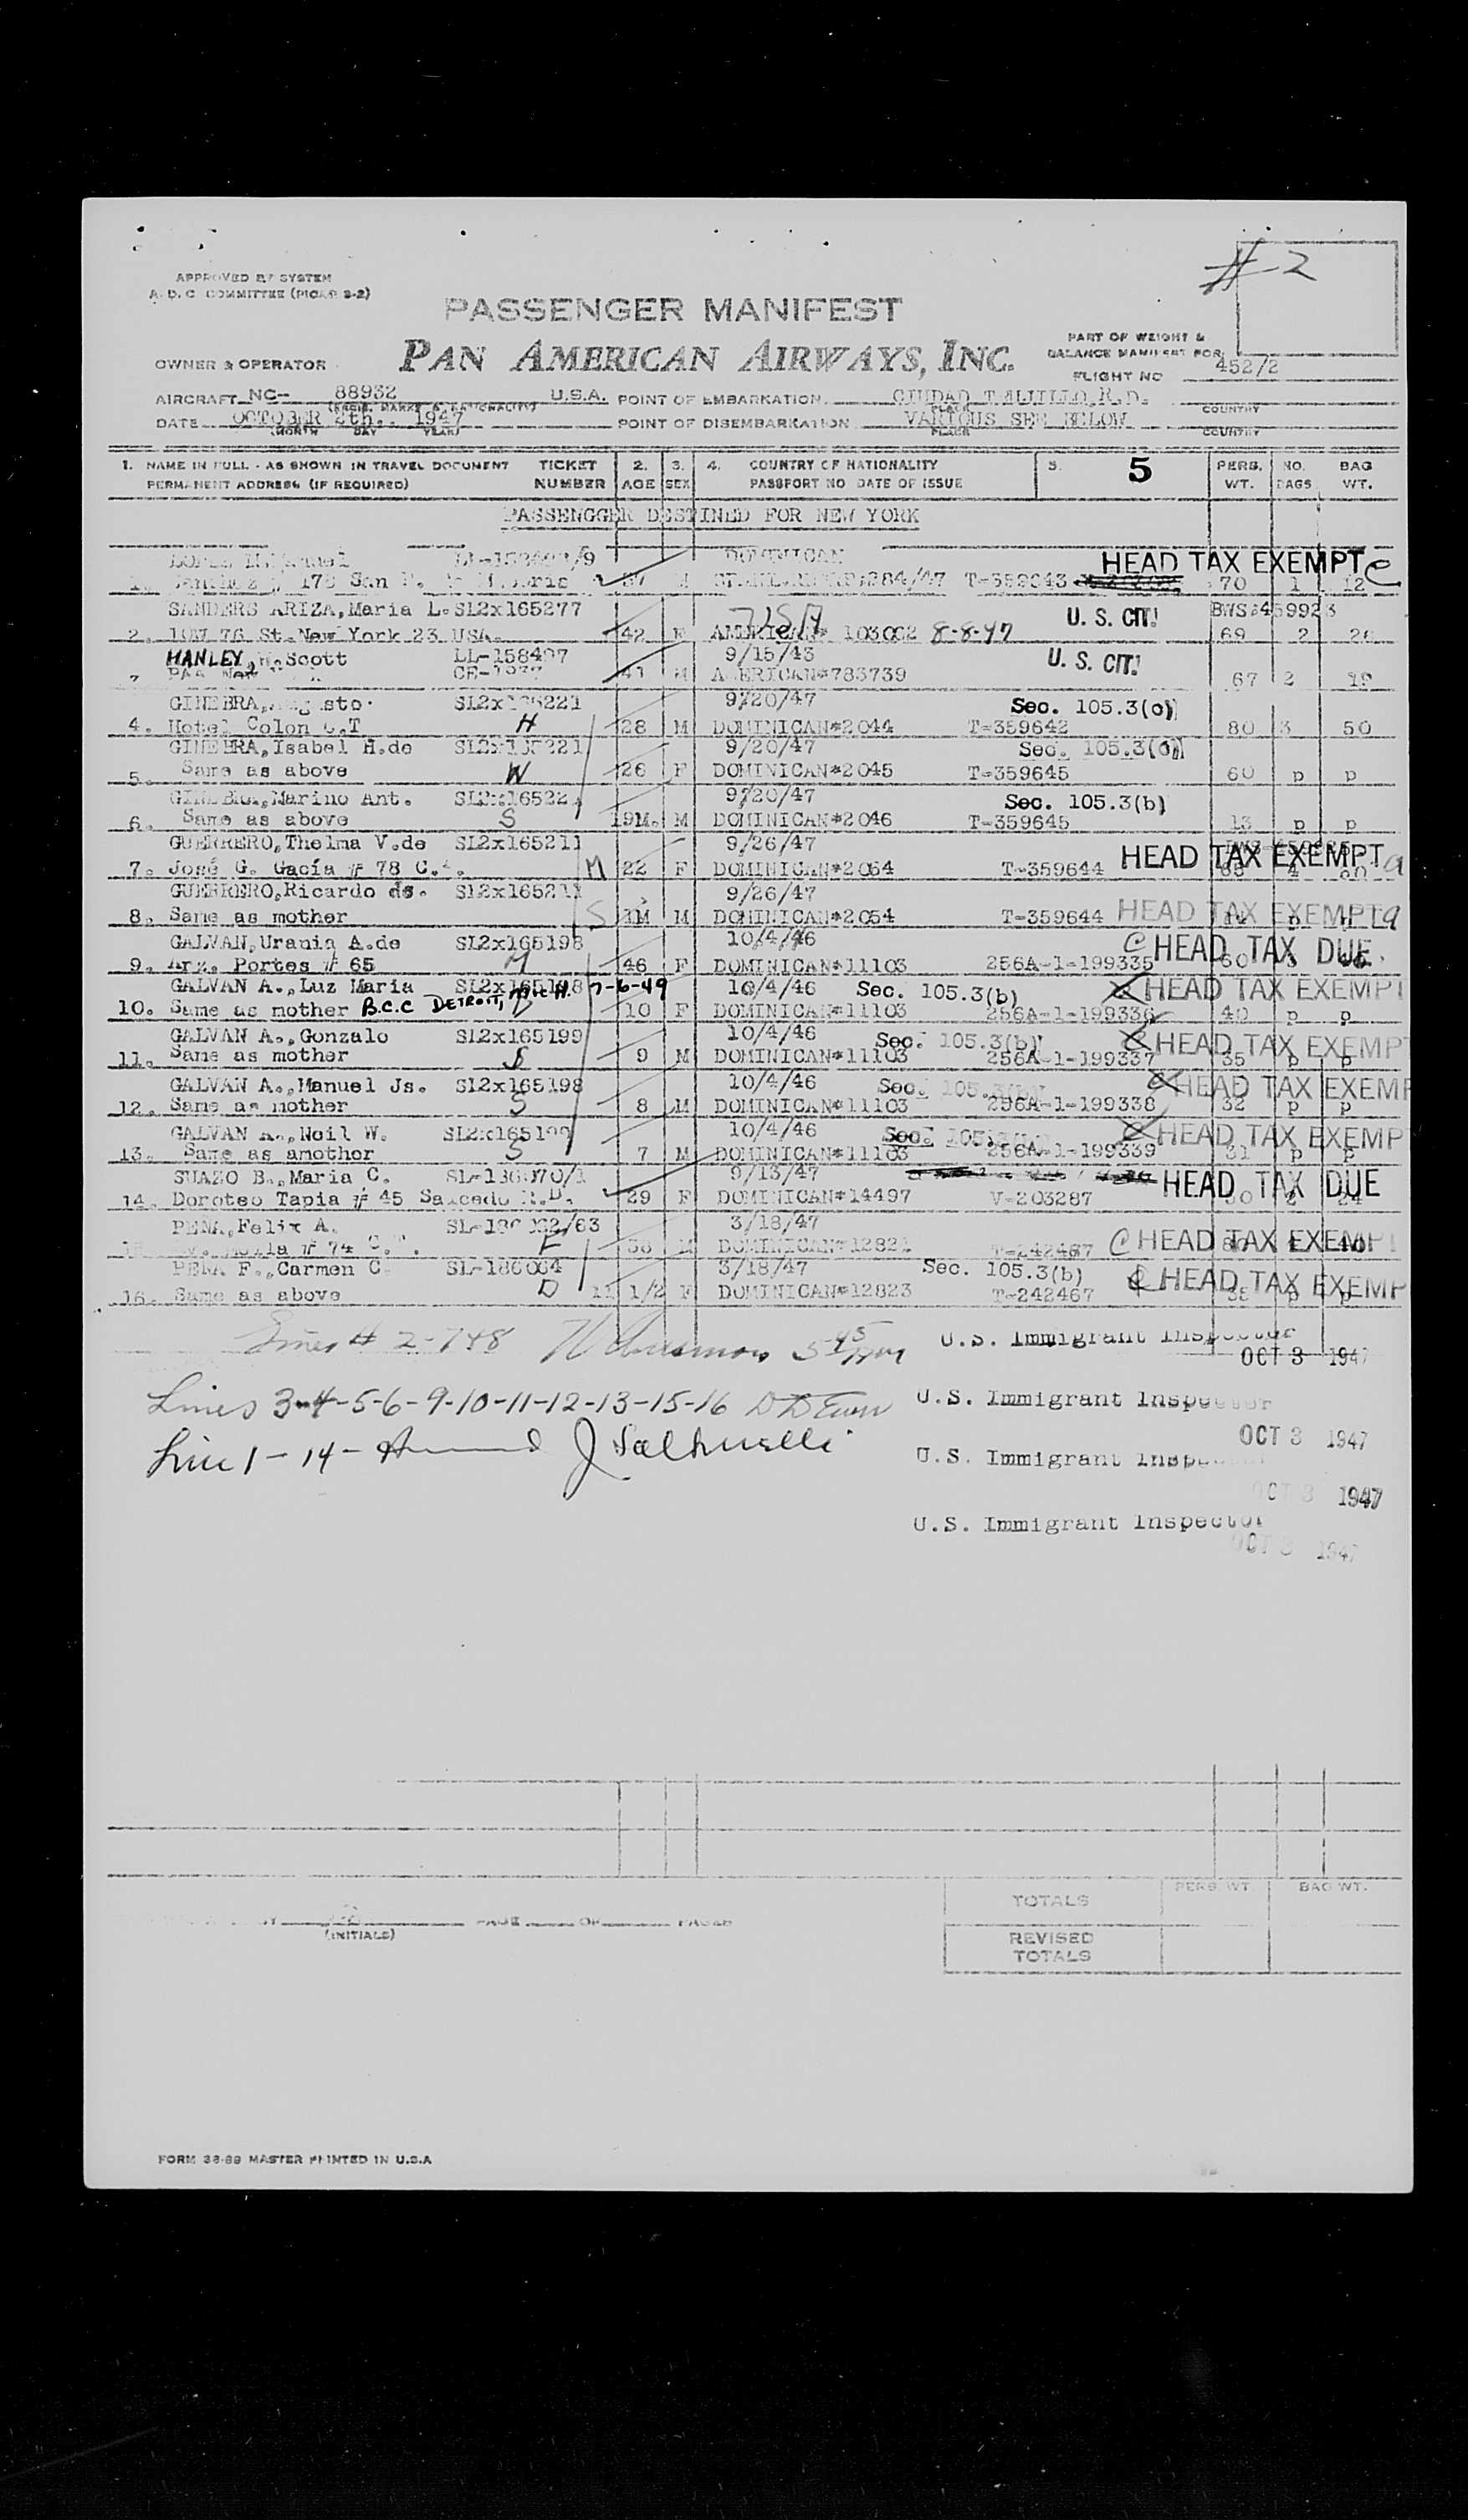 #2
APPROVED BY SYSTEM
A. D. C. COMMITTEE
PASSENGER MANIFEST
PAN AMERICAN AIRWAYS, INC.
PART OF WEIGHT &
BALANCE MANIFEST FOR
FLIGHT NO 452/2
OWNER & OPERATOR
AIRCRAFT NC- 88932 U.S.A. POINT OF EMBARKATION. CIUDAD TRUJILLO, R.D.
PLACE COUNTRY
DATE OCTOBER 2th., 1947 POINT OF DISEMBARKATION VARIOUS SEE BELOW
(MONTH DAY YEAR) PLACE COUNTRY
1. NAME IN FULL - AS SHOWN IN TRAVEL DOCUMENT TICKET 2. 3. 4. COUNTRY OF NATIONALITY 5. 5 PERS. NO. BAG
PERMANENT ADDRESS (IF REQUIRED) NUMBER AGE SEX PASSPORT NO DATE OF ISSUE WT. BAGS WT.
PASSENGGER DESTINED FOR NEW YORK
DOMINICAN HEAD TAX EXEMPT c
1. 178 San M T-359643 70 1 12
SANDERS ARIZA, Maria L. SL2x165277 USA U. S. CIT.
2. 76 St. New York 23 USA. 42 F AMERICAN# 8-8-47 69 2
HANLEY, Scott 9/15/43 U. S. CIT.
41 M AMERICAN#783739 67 2 19
GINEBRA, SL2x 9/20/47 Sec. 105.3(c)
4. Hotel Colon C.T H 28 M DOMINICAN#2044 T-359642 80 3 50
GINEBRA, Isabel H.de 9/20/47 Sec. 105.3(c)
5. Same as above W 26 F DOMINICAN#2045 T-359645 60 p p
Marino Ant. 9/20/47 Sec. 105.3(b)
6. Same as above S 19M. M DOMINICAN#2046 T-359645 13 p p
GUERRERO, Thelma V.de SL2x165211 9/26/47
7. José G. Gacía # 78 C.T. M 22 F DOMINICAN#2054 T-359644 HEAD TAX EXEMPT a
GUERRERO, Ricardo de. SL2x165211 9/26/47
8. Same as mother S M DOMINICAN#2054 T-359644 HEAD TAX EXEMPT a
GALVAN, Urania A.de SL2x165198 10/4/46
9. Arz. Portes # 65 M 46 F DOMINICAN#11103 256A-1-199335 c HEAD TAX DUE.
GALVAN A., Luz Maria SL2x165198 7-6-49 10/4/46 Sec. 105.3(b) HEAD TAX EXEMPT
10. Same as mother B.C.C DETROIT, MICH. D 10 F DOMINICAN#11103 256A-1-199336 40 p p
GALVAN A., Gonzalo SL2x165199 10/4/46 Sec. 105.3(b) HEAD TAX EXEMP
11. Same as mother S 9 M DOMINICAN#11103 256A-1-199337 35 p p
GALVAN A., Manuel Js. SL2x165198 10/4/46 Sec. 105.3(b) HEAD TAX EXEMP
12. Same as mother S 8 M DOMINICAN#11103 256A-1-199338 32 p p
GALVAN A., Noil W. 10/4/46 Sec. HEAD TAX EXEMP
13. Same as amother S 7 M DOMINICAN#11103 256A-1-199339 31 p p
SUAZO B., Maria C. 9/13/47
14. Doroteo Tapia # 45 Salcedo R.D. 29 F DOMINICAN#14497 V-203287 HEAD TAX DUE
PENA, Felix A. 3/18/47
# 74 C.T. F M T-242467 c HEAD TAX EXEMP
PENA F., Carmen C. 3/18/47 Sec. 105.3(b)
16. Same as above D 11 1/2 F DOMINICAN#12823 T-242467 HEAD TAX EXEMP
Lines # 2-7+8 5 45 PM U.S. Immigrant Inspector
OCT 3 1947
Lines 3-4-5-6-9-10-11-12-13-15-16 U.S. Immigrant Inspector
OCT 3 1947
Line 1-14- U.S. Immigrant
OCT 3 1947
U.S. Immigrant Inspector
OCT 3 1947
TOTALS PERS WT. BAG WT.
PAGE OF PAGES
(INITIALS)
REVISED
TOTALS
FORM MASTER PRINTED IN U.S.A